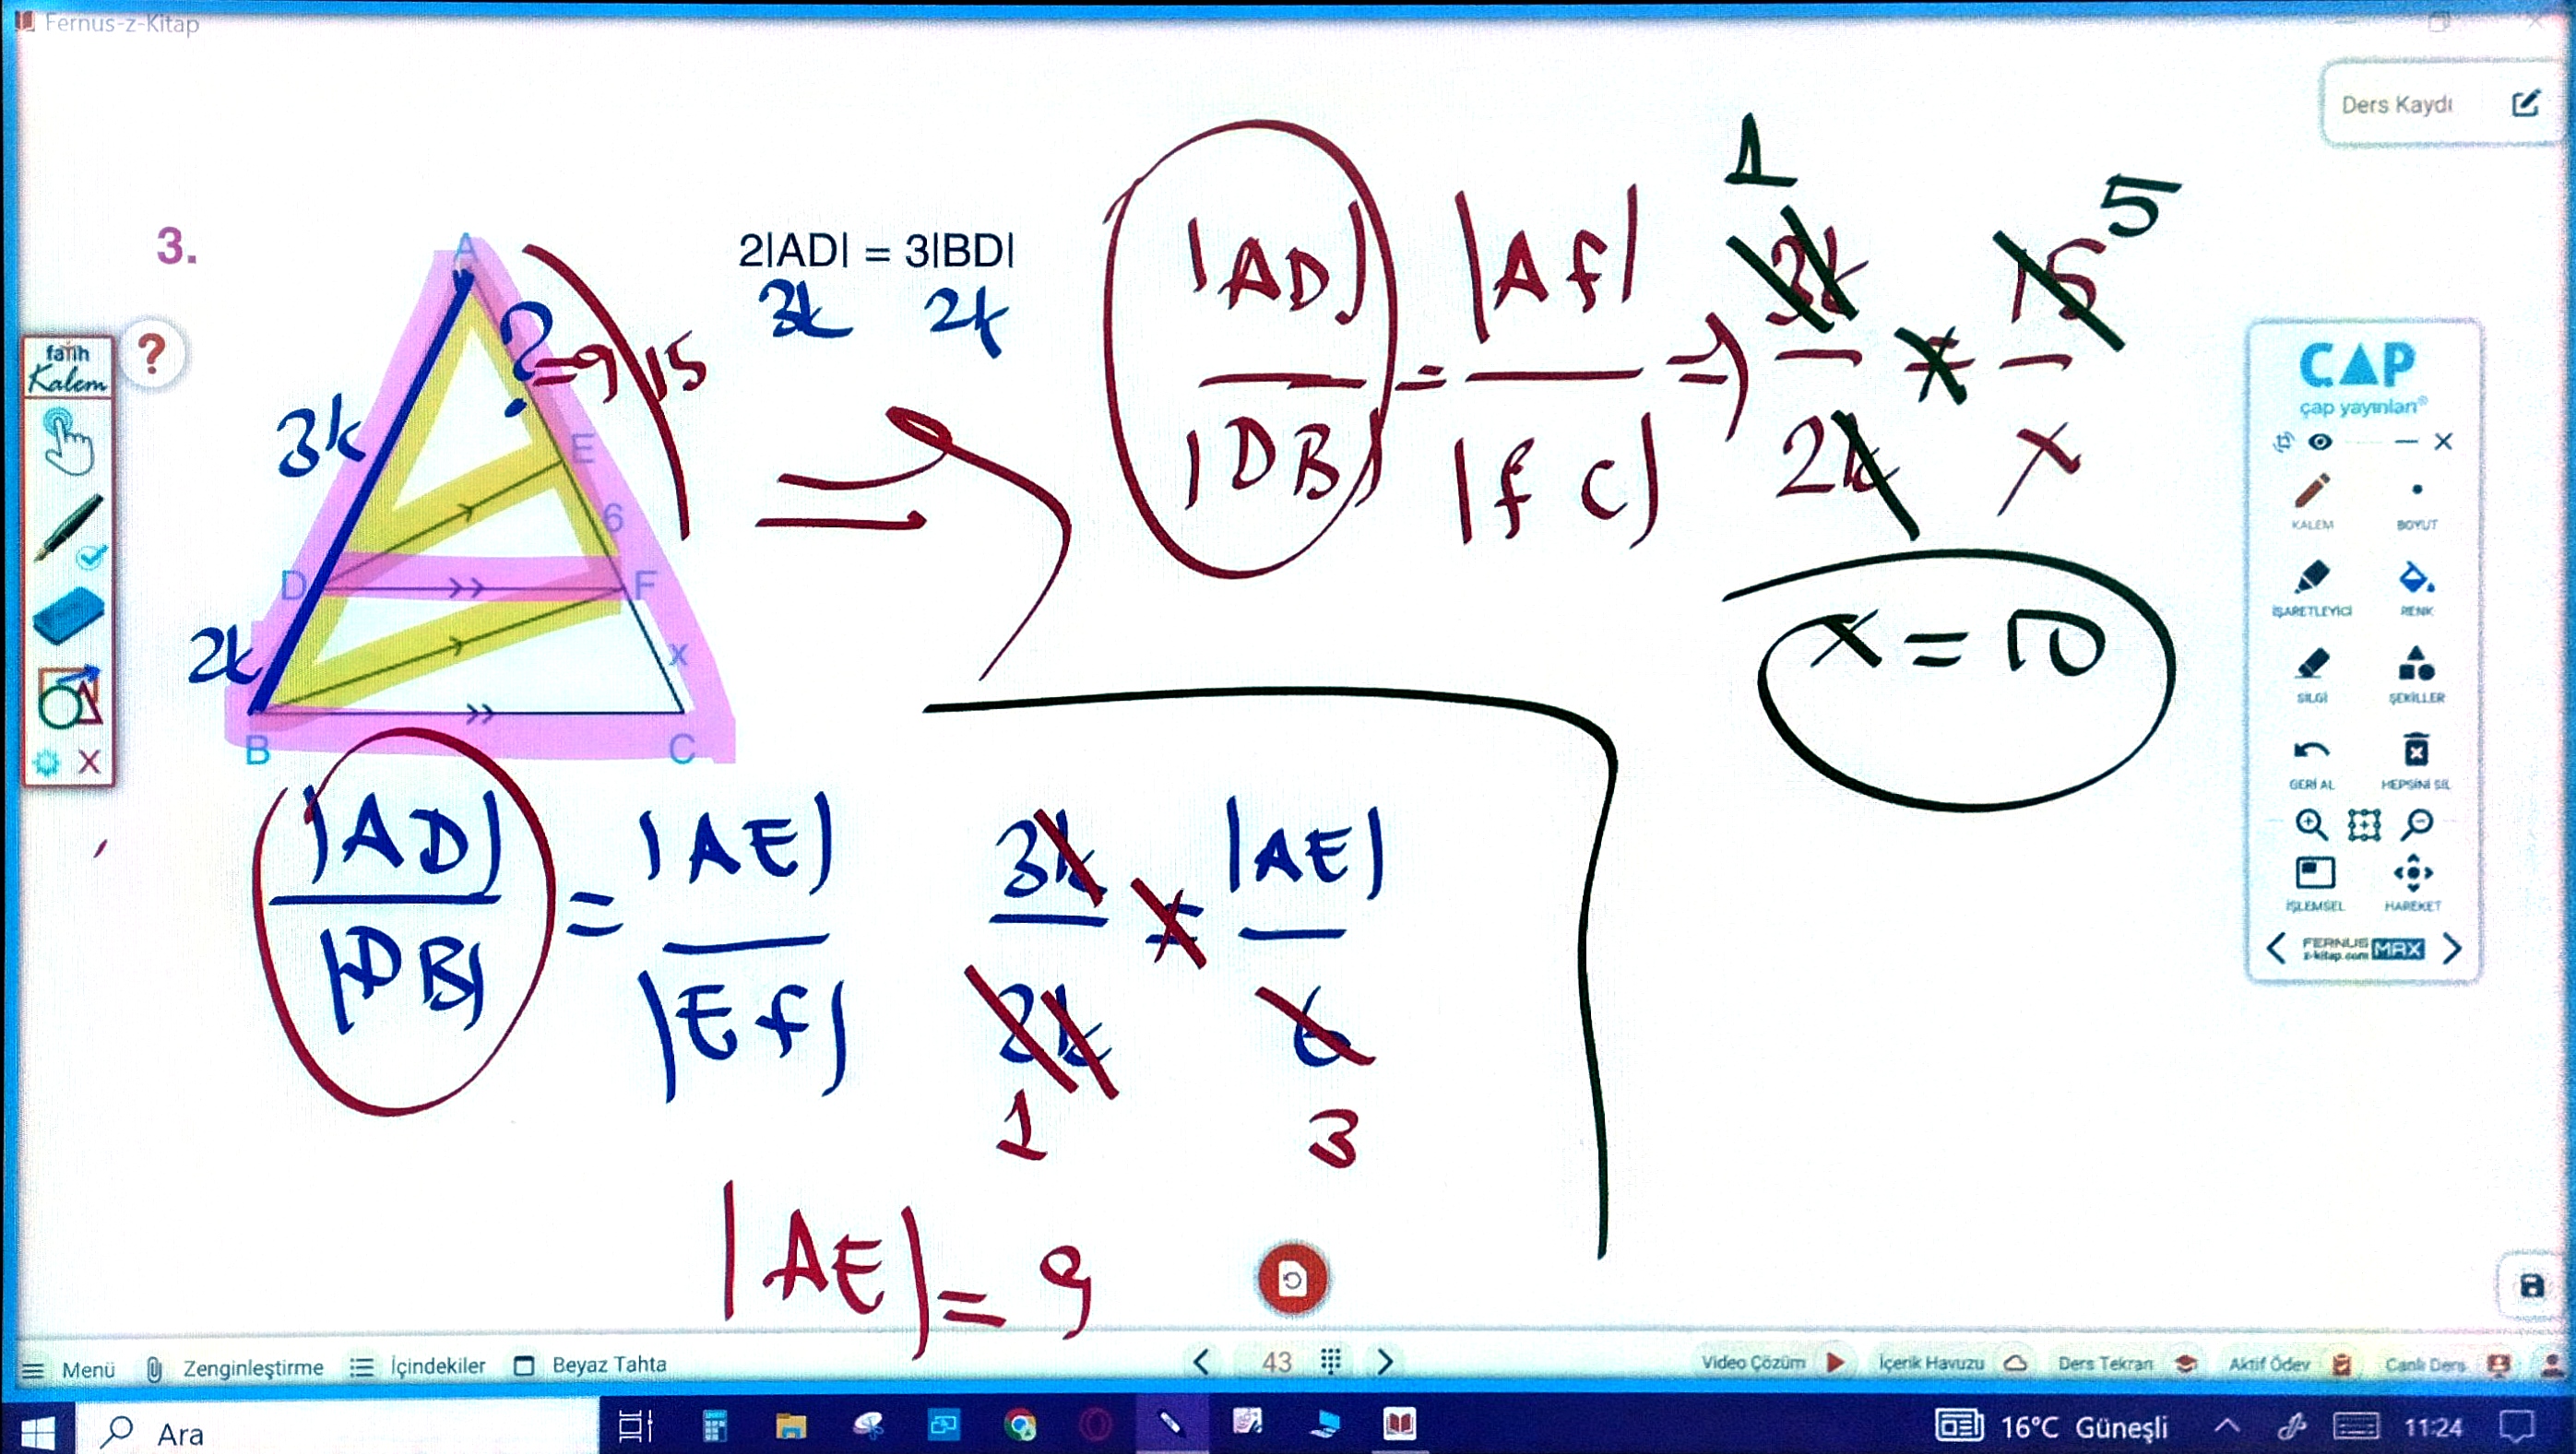 Fernus-z-Kitap
Ders Kaydı
3.
2|AD| = 3|BD|
3k 2k
A
?
=9
15
3k
E
6
D
F
2k
x
B
C
|AD| / |DB| = |AF| / |FC| ⇒ 3k / 2k = 15 / x
1
5
x = 10
|AD| / |DB| = |AE| / |EF|
3k / 2k = |AE| / 6
1
3
|AE| = 9
fatih
Kalem
?
ÇAP
çap yayınları®
KALEM
BOYUT
İŞARETLEYİCİ
RENK
SİLGİ
ŞEKİLLER
GERİ AL
HEPSİNİ SİL
İŞLEMSEL
HAREKET
FERNUS
z-kitap.com MAX
Menü
Zenginleştirme
İçindekiler
Beyaz Tahta
43
Video Çözüm
İçerik Havuzu
Ders Tekrarı
Aktif Ödev
Canlı Ders
Ara
16°C Güneşli
11:24